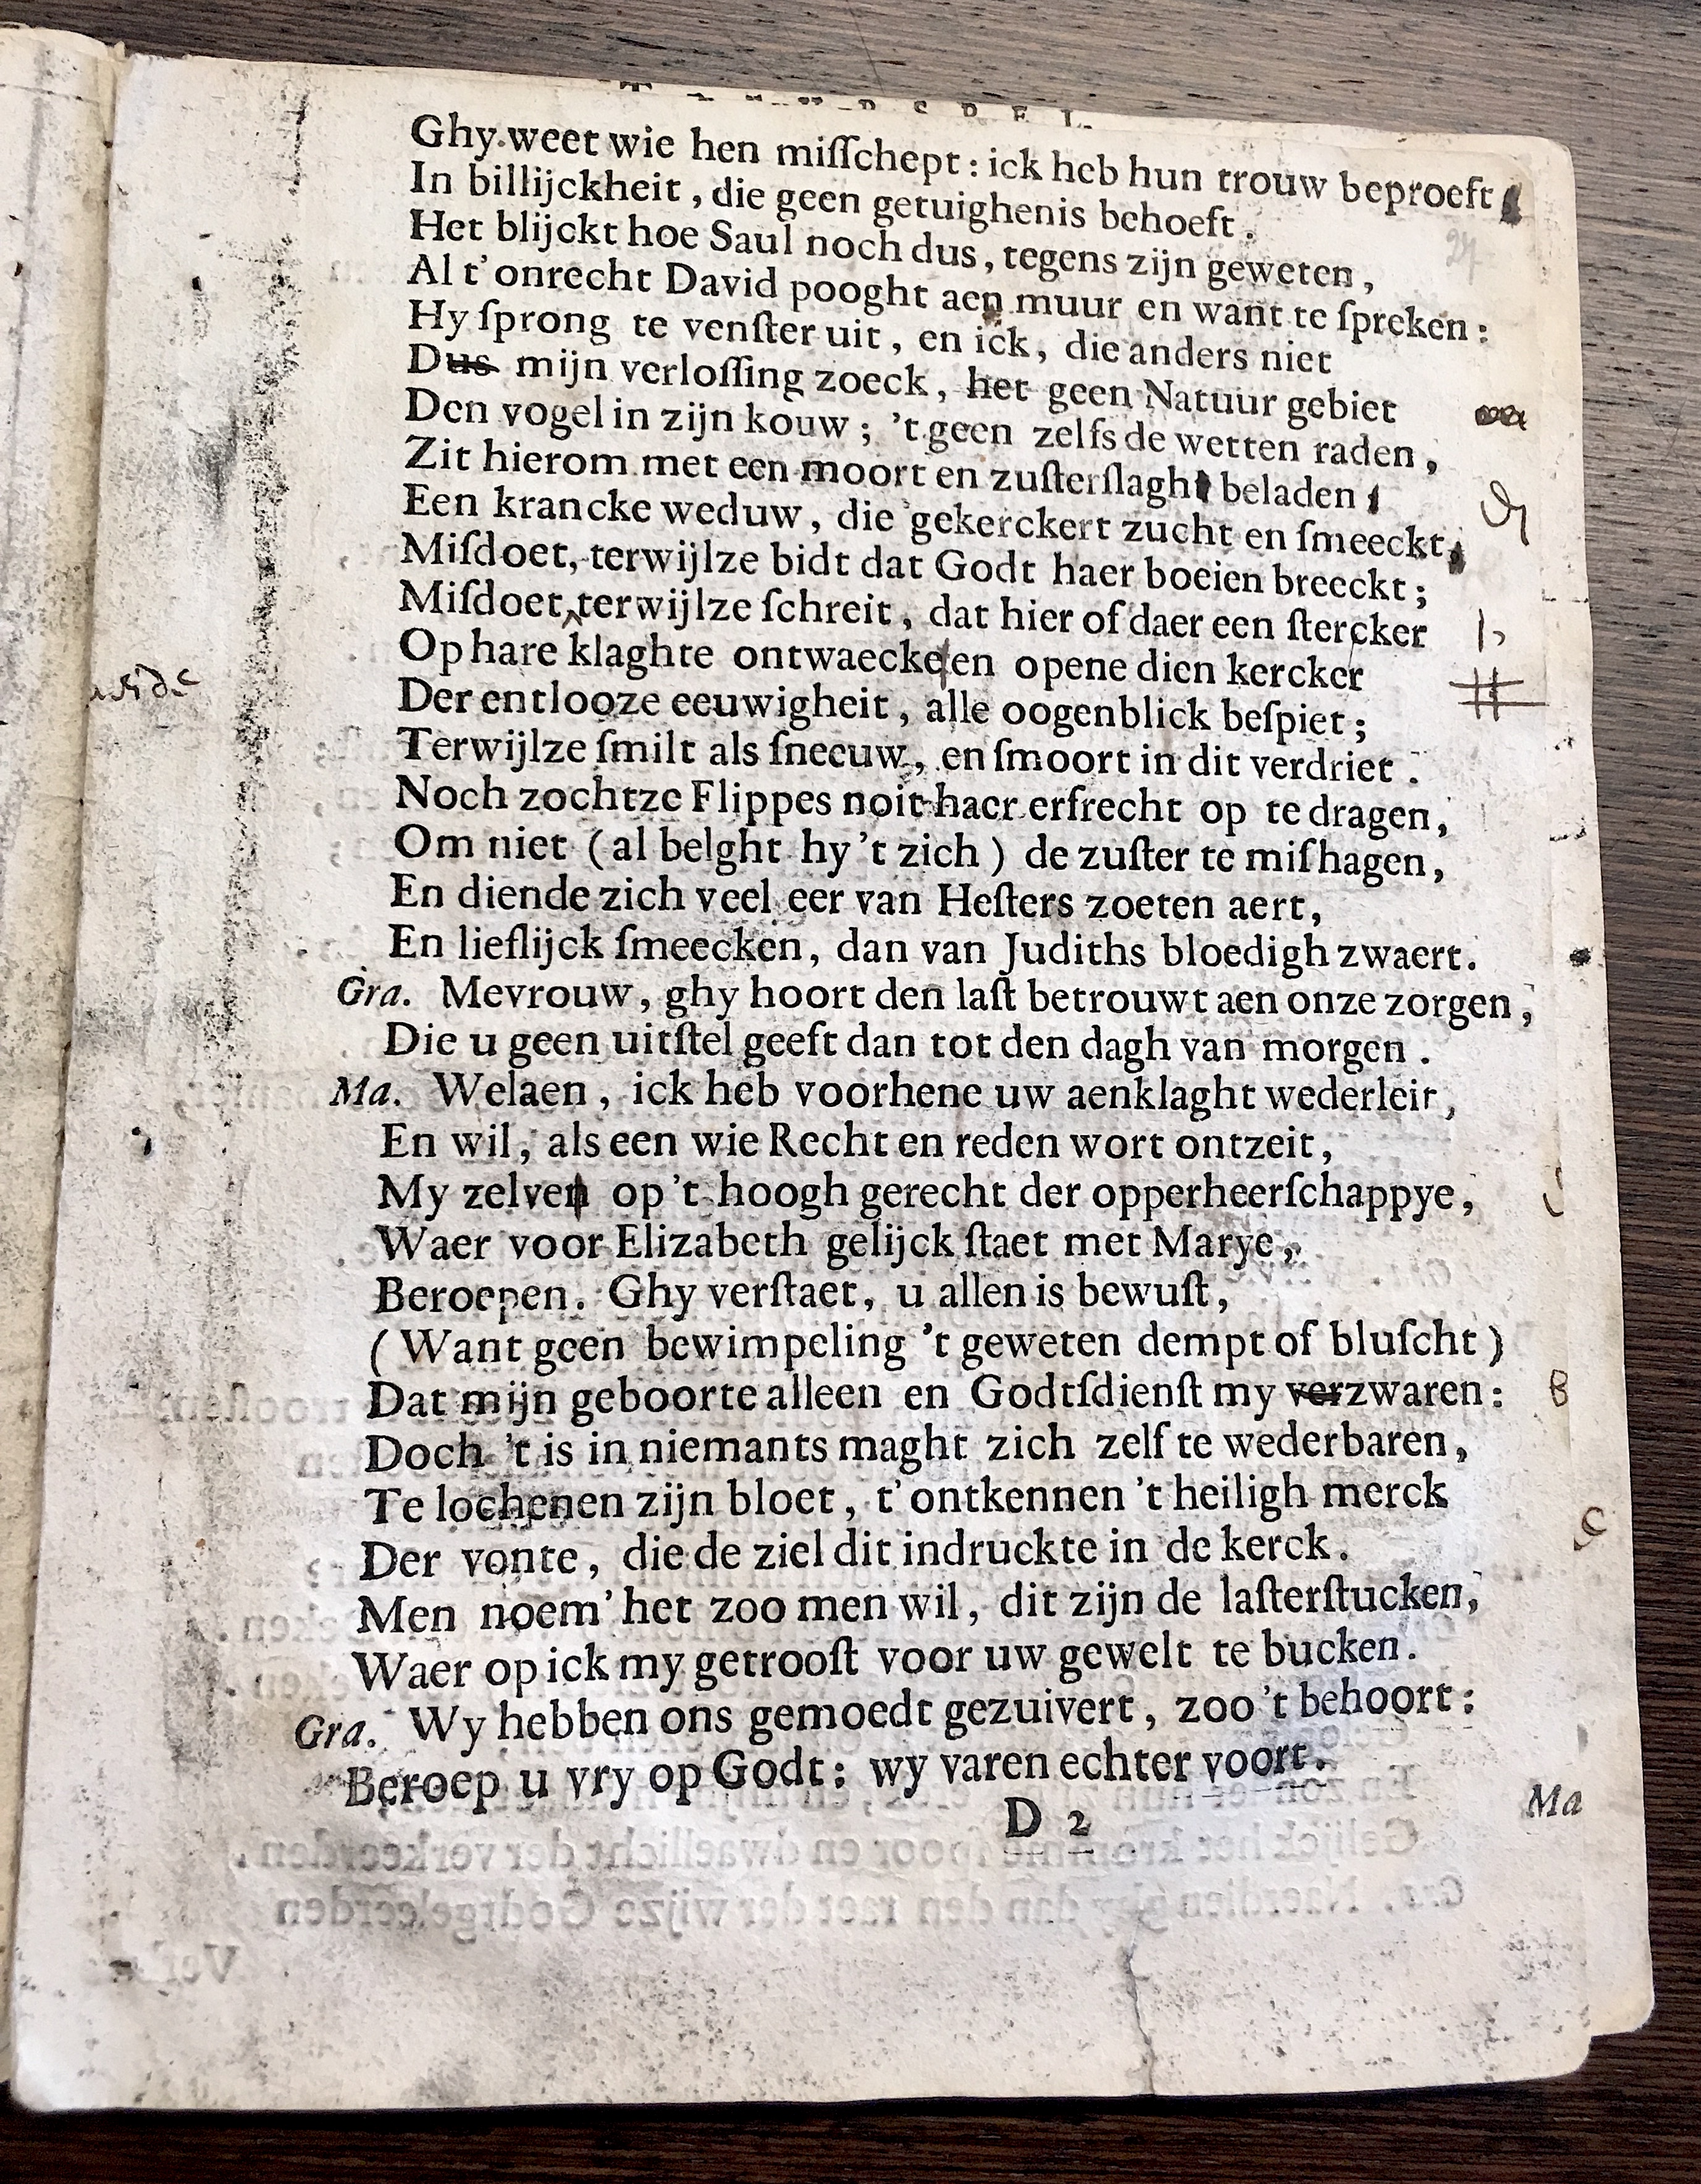 R S P E L.
Ghy weet wie hen miſſchept: ick heb hun trouw beproeft
In billijckheit, die geen getuighenis behoeft.
Het blijckt hoe Saul noch dus, tegens zijn geweten,
Al t'onrecht David pooght aen muur en want te ſpreken:
Hy ſprong te venſter uit, en ick, die anders niet
Dus mijn verloſſing zoeck, het geen Natuur gebiet
Den vogel in zijn kouw; 't geen zelfs de wetten raden,
Zit hierom met een moort en zuſterſlaght beladen
Een krancke weduw, die gekerckert zucht en ſmeeckt,
Miſdoet, terwijlze bidt dat Godt haer boeien breeckt;
Miſdoet terwijlze ſchreit, dat hier of daer een ſtercker
Op hare klaghte ontwaecke en opene dien kercker
Der entlooze eeuwigheit, alle oogenblick beſpiet;
Terwijlze ſmilt als ſneeuw, en ſmoort in dit verdriet.
Noch zochtze Flippes noit haer erfrecht op te dragen,
Om niet (al belght hy 't zich) de zuſter te miſhagen,
En diende zich veel eer van Heſters zoeten aert,
En lieflijck ſmeecken, dan van Judiths bloedigh zwaert.
Gra. Mevrouw, ghy hoort den laſt betrouwt aen onze zorgen,
Die u geen uitſtel geeft dan tot den dagh van morgen.
Ma. Welaen, ick heb voorhene uw aenklaght wederleit,
En wil, als een wie Recht en reden wort ontzeit,
My zelven op 't hoogh gerecht der opperheerſchappye,
Waer voor Elizabeth gelijck ſtaet met Marye,
Beroepen. Ghy verſtaet, u allen is bewuſt,
(Want geen bewimpeling 't geweten dempt of bluſcht)
Dat mijn geboorte alleen en Godtſdienſt my verzwaren: B
Doch 't is in niemants maght zich zelf te wederbaren,
Te lochenen zijn bloet, t'ontkennen 't heiligh merck
Der vonte, die de ziel dit indruckte in de kerck.
Men noem' het zoo men wil, dit zijn de laſterſtucken,
Waer op ick my getrooſt voor uw gewelt te bucken.
Gra. Wy hebben ons gemoedt gezuivert, zoo 't behoort:
Beroep u vry op Godt: wy varen echter voort.
D 2
Ma